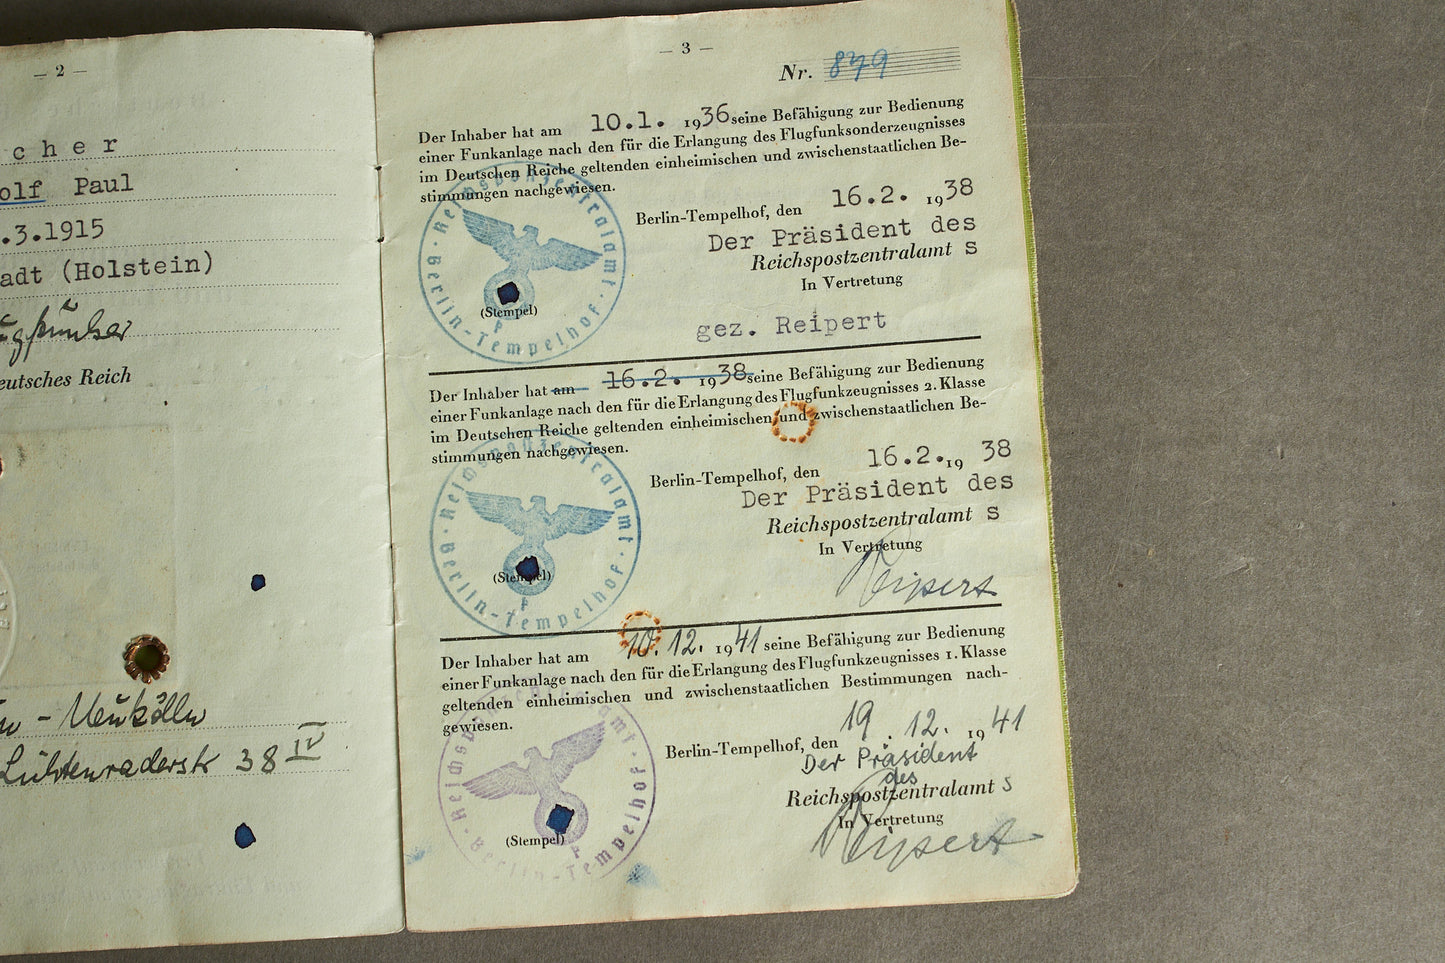 – 2 –
cher
olf Paul
.3.1915
adt (Holstein)
eutsches Reich
- Neukölln
38 IV
– 3 –
Nr. 879
Der Inhaber hat am 10.1. 1936 seine Befähigung zur Bedienung
einer Funkanlage nach den für die Erlangung des Flugfunksonderzeugnisses
im Deutschen Reiche geltenden einheimischen und zwischenstaatlichen Be-
stimmungen nachgewiesen.
Berlin-Tempelhof, den 16.2. 1938
Der Präsident des
Reichspostzentralamt s
In Vertretung
(Stempel)
Reichspostzentralamt · Berlin-Tempelhof ·
gez. Reipert
Der Inhaber hat am 16.2. 1938 seine Befähigung zur Bedienung
einer Funkanlage nach den für die Erlangung des Flugfunkzeugnisses 2. Klasse
im Deutschen Reiche geltenden einheimischen und zwischenstaatlichen Be-
stimmungen nachgewiesen.
Berlin-Tempelhof, den 16.2. 19 38
Der Präsident des
Reichspostzentralamt s
In Vertretung
(Stempel)
Reichspostzentralamt · Berlin-Tempelhof ·
Reipert
Der Inhaber hat am 10. 12. 1941 seine Befähigung zur Bedienung
einer Funkanlage nach den für die Erlangung des Flugfunkzeugnisses 1. Klasse
geltenden einheimischen und zwischenstaatlichen Bestimmungen nach-
gewiesen.
Berlin-Tempelhof, den 19. 12. 1941
Der Präsident
des
Reichspostzentralamt s
In Vertretung
(Stempel)
Reichspostzentralamt · Berlin-Tempelhof ·
Reipert